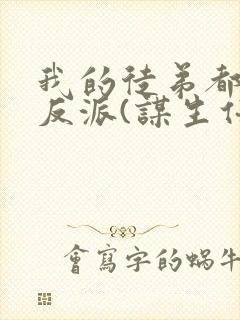 我的徒弟都
反派(謀生
會寫字的蝸牛